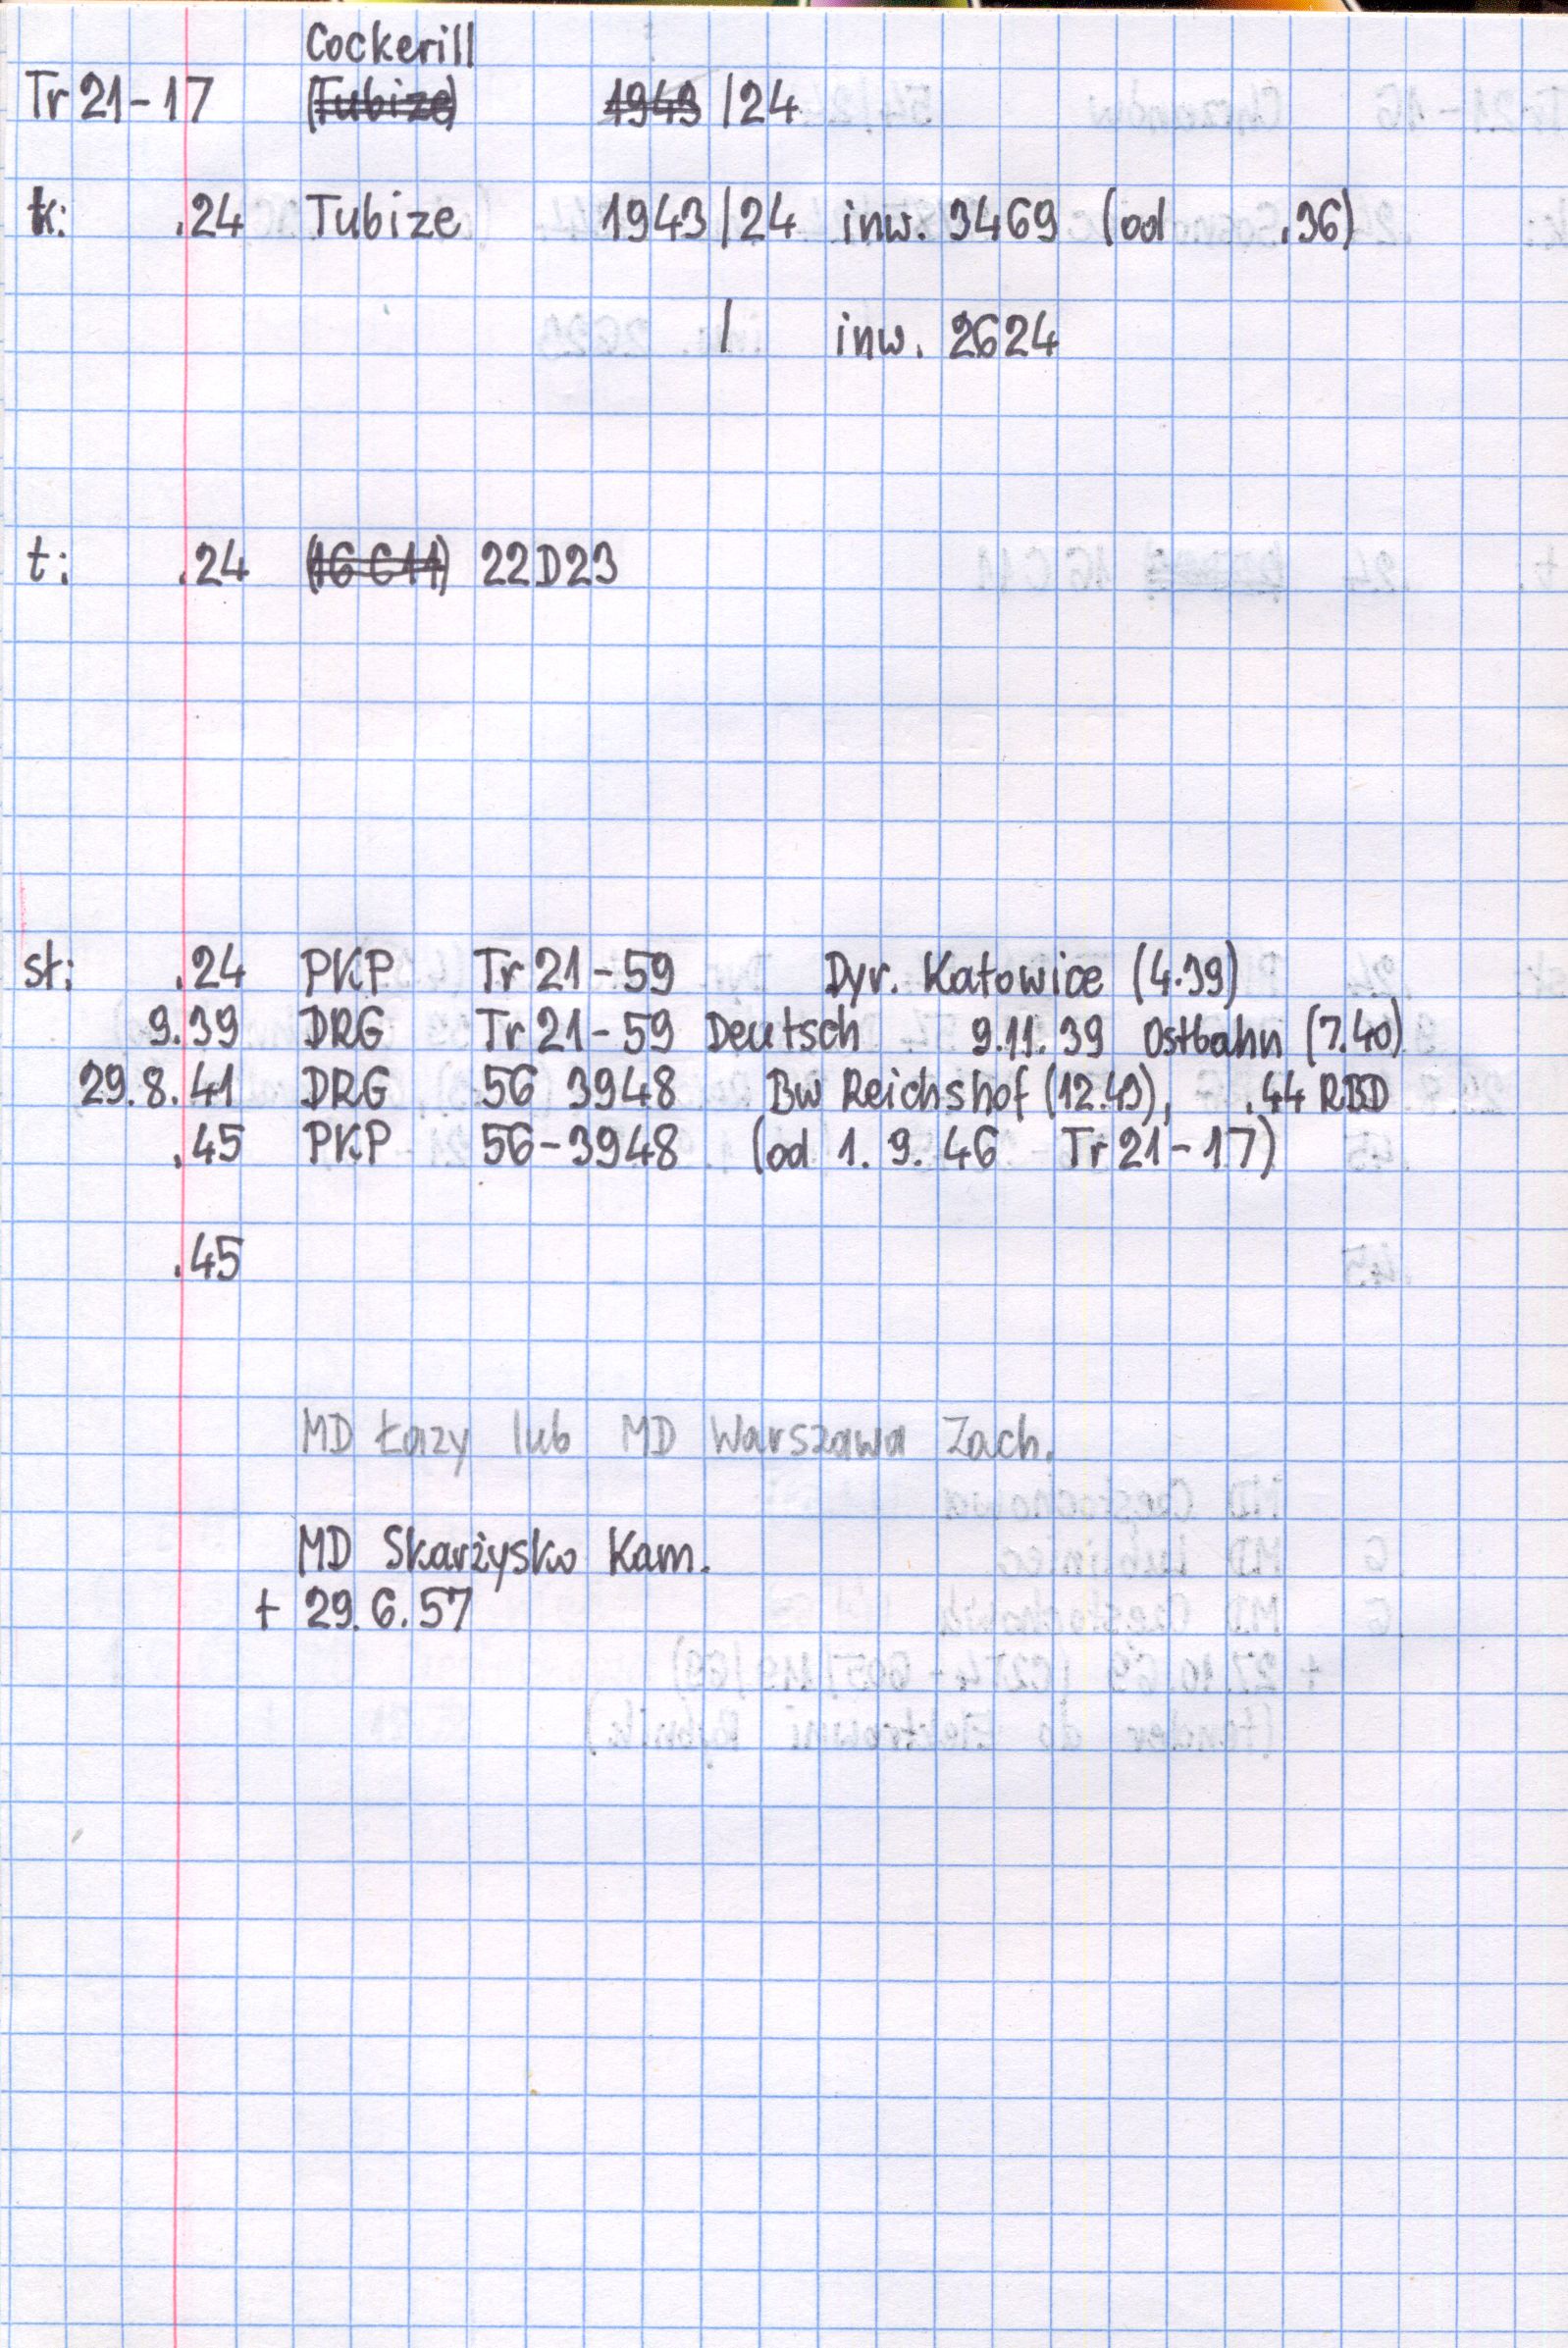 Cockerill
Tr 21-17 (Tubize) 1943 /24
k: .24 Tubize 1943/24 inw. 3469 (od .36)
/ inw. 2624
t: .24 (16 C11) 22D23
st: .24 PKP Tr 21-59 Dyr. Katowice (4.39)
9.39 DRG Tr 21-59 Deutsch 9.11.39 Ostbahn (7.40)
29.8.41 DRG 56 3948 Bw Reichshof (12.43), .44 RBD
.45 PKP 56-3948 (od 1. 9. 46 Tr 21-17)
.45
MD Łazy lub MD Warszawa Zach.
MD Skarżysko Kam.
+ 29.6.57